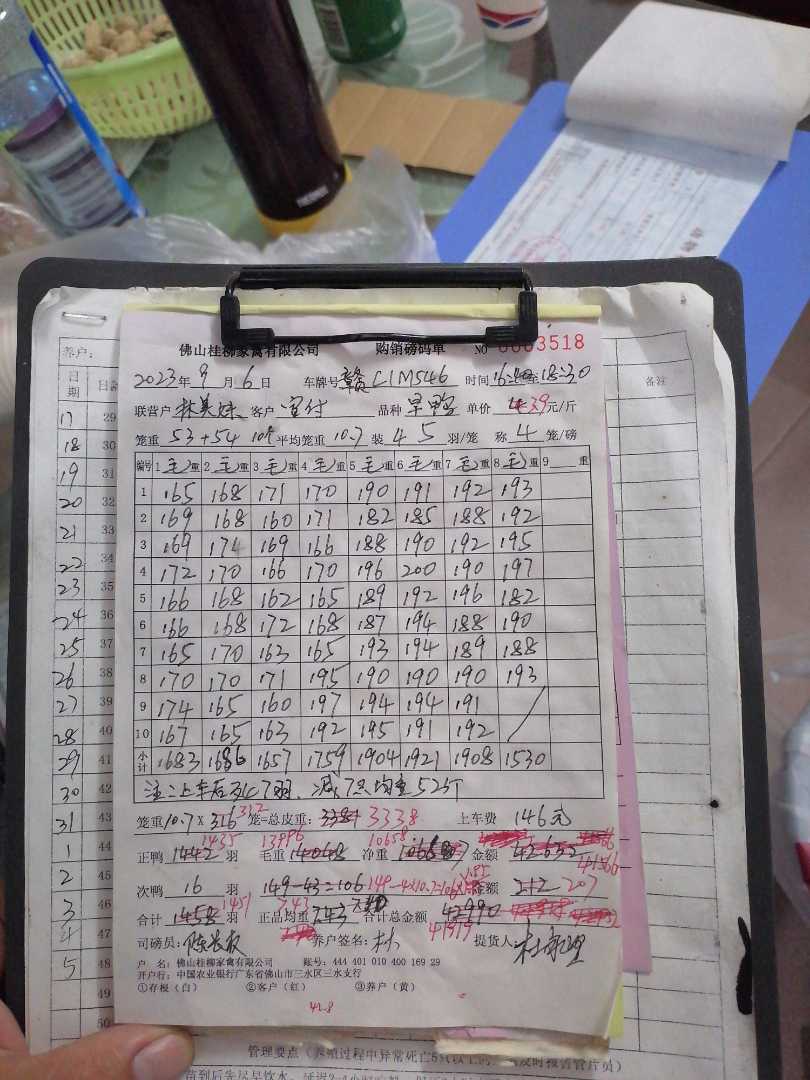 佛山桂柳家禽有限公司 购销磅码单 NO 0003518
2023年 9月 6日 车牌号 赣C1M546 时间 至18:30
联营户 林美妹 客户 品种 单价 4.39元/斤
笼重 53+54 平均笼重 10.7 装 4 5 羽/笼 称 4 笼/磅
编号 1毛重 2毛重 3毛重 4毛重 5毛重 6毛重 7毛重 8毛重 9 重
1 165 168 171 170 190 191 192 193
2 169 168 160 171 182 185 188 192
3 169 174 169 166 188 190 192 195
4 172 170 166 170 196 200 190 197
5 166 168 162 165 189 192 196 182
6 166 168 172 168 187 194 188 190
7 165 170 163 165 193 194 189 188
8 170 170 171 195 190 190 190 193
9 174 165 160 197 194 194 191
10 167 165 163 192 195 191 192
小计 1683 1686 1657 1759 1904 1921 1908 1530
注:上车后死7羽、减7只均重52斤
笼重10.7×316 312 笼=总皮重: 3384 3338 上车费 146元
正鸭 1442 1435 羽 毛重 14048 13996 净重 10658 金额
次鸭 16 羽 149-43=106 金额 212 207
合计 1458 1451 羽 正品均重 7.43 合计总金额 42990 41919
司磅员: 养户签名: 林 提货人:
户 名: 佛山桂柳家禽有限公司 账号: 444 401 010 400 169 29
开户行: 中国农业银行广东省佛山市三水区三水支行
①存根(白) ②客户(红) ③养户(黄)
养户:
日期 日龄 备注
17 29
18 30
19 31
20 32
21 33
22 34
23 35
24 36
25 37
26 38
27 39
28 40
29 41
30 42
31 43
1 44
2 45
3 46
4 47
5 48
49
50
管理要点(养殖过程中异常死亡5
及时报告管厅员)